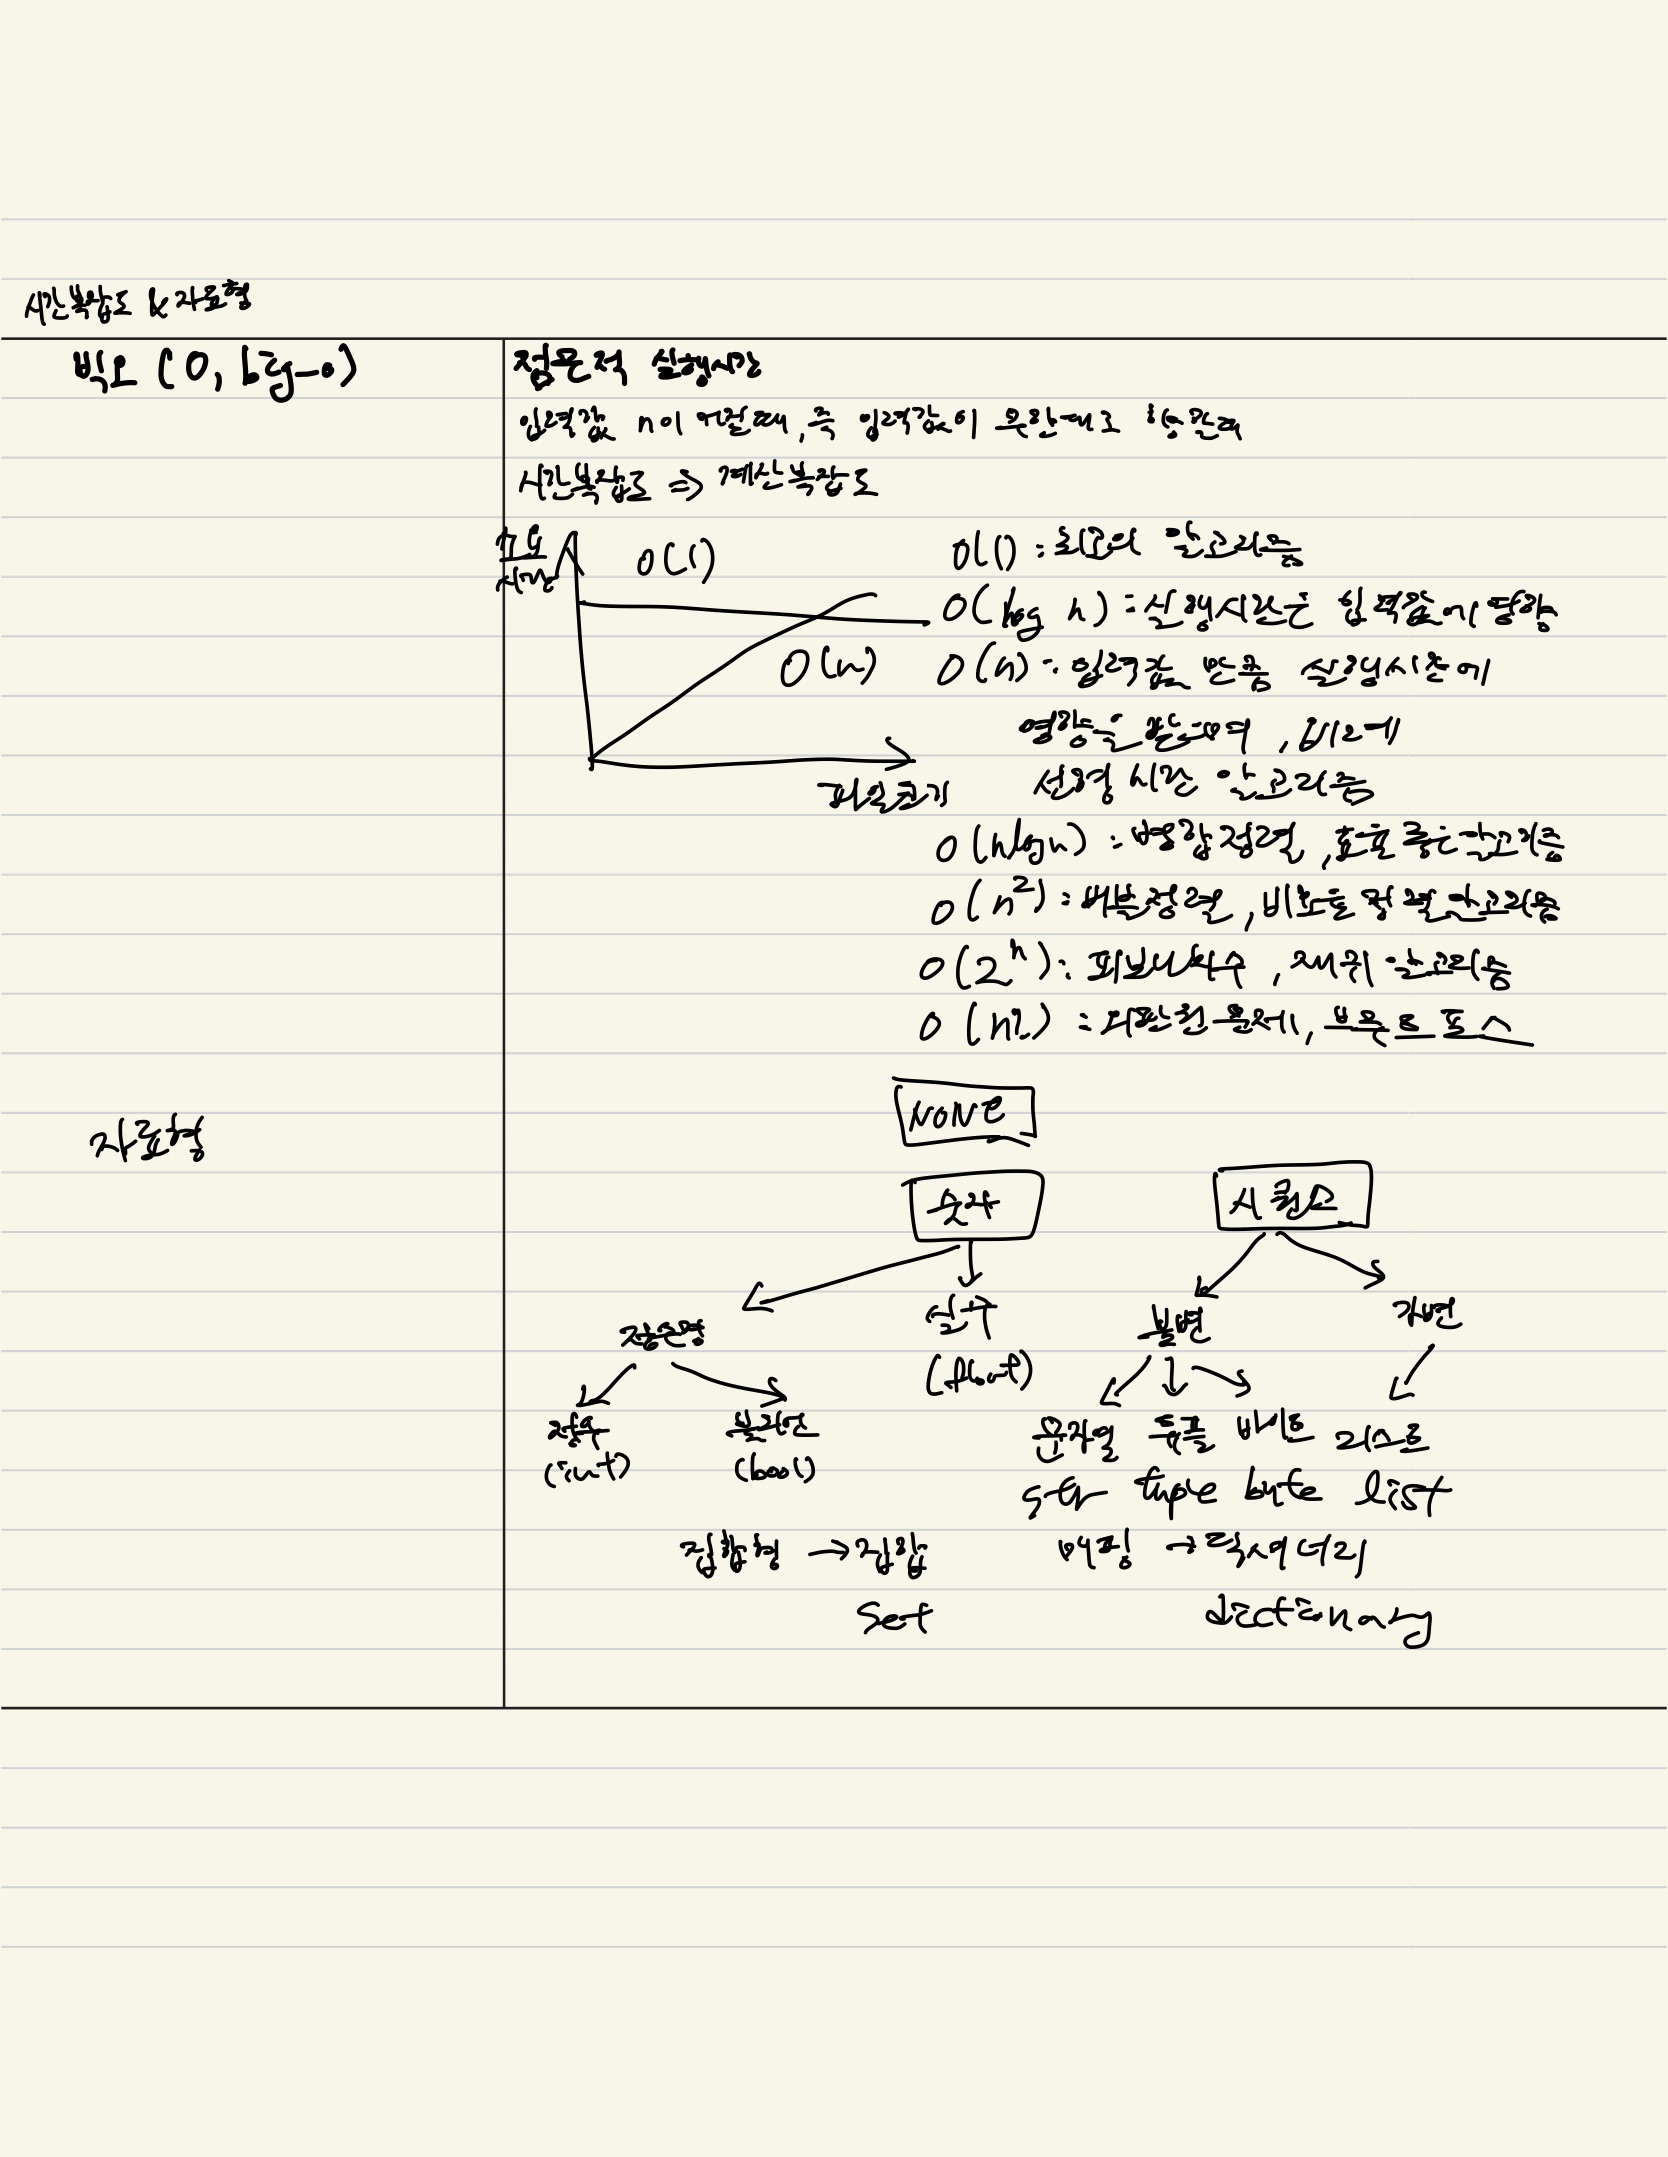 시간복잡도 & 자료형
빅오 (O, big-o)
점근적 실행시간
입력값 n이 커질때, 즉 입력값이 무한대로 향할때
시간복잡도 ⇒ 계산복잡도
소요
시간
O(1)
O(n)
파일크기
O(1) : 최고의 알고리즘
O(log n) : 실행시간은 입력값에 영향
O(n) : 입력값 만큼 실행시간에
영향을 받으며, 비례
선형 시간 알고리즘
O(nlogn) : 병합정렬, 효율 좋은 알고리즘
O(n²) : 버블정렬, 비효율 정렬알고리즘
O(2ⁿ) : 피보나치수, 재귀 알고리즘
O(n!) : 외판원 문제, 브루트 포스
자료형
NONE
숫자 시퀀스
정수형 실수 불변 가변
(float)
정수 불리언 문자열 튜플 바이트 리스트
(int) (bool) str tuple byte list
집합형 → 집합 매핑 → 딕셔너리
set dictionary